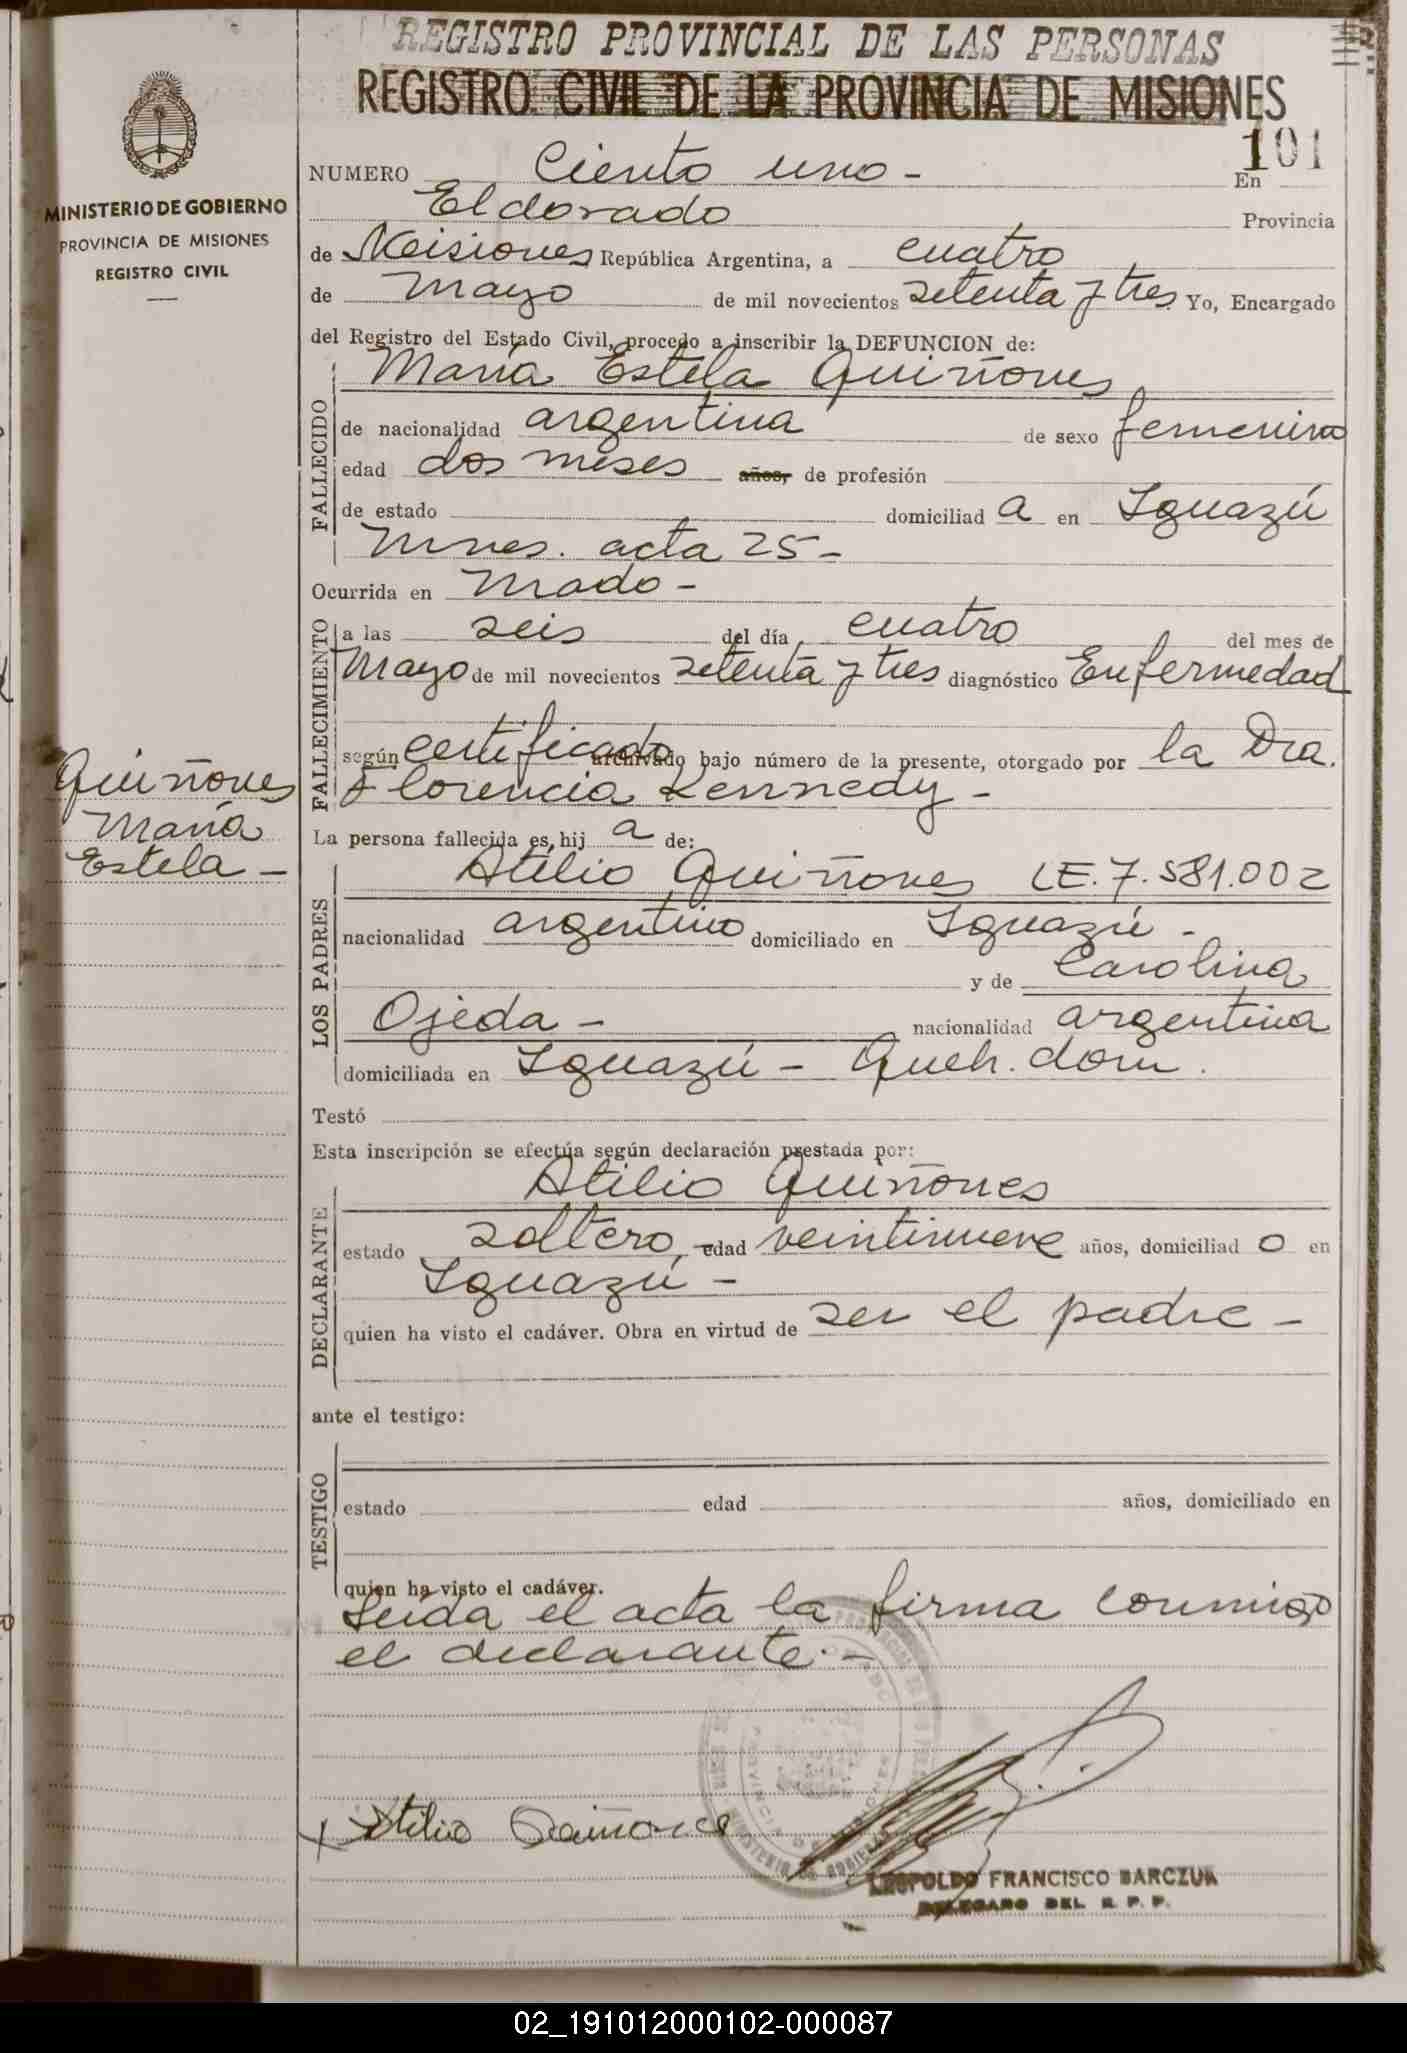 REGISTRO PROVINCIAL DE LAS PERSONAS
REGISTRO CIVIL DE LA PROVINCIA DE MISIONES
101
MINISTERIO DE GOBIERNO
PROVINCIA DE MISIONES
REGISTRO CIVIL
NUMERO Ciento uno - En
Eldorado Provincia
de Misiones República Argentina, a cuatro
de Mayo de mil novecientos setenta y tres Yo, Encargado
del Registro del Estado Civil, procedo a inscribir la DEFUNCION de:
María Estela Quiñones
FALLECIDO
de nacionalidad argentina de sexo femenino
edad dos meses años, de profesión
de estado domiciliad a en Iguazú
Mnes. acta 25 -
Ocurrida en Mado -
FALLECIMIENTO
a las seis del día cuatro del mes de
Mayo de mil novecientos setenta y tres diagnóstico Enfermedad
según certificado archivado bajo número de la presente, otorgado por la Dra.
Florencia Kennedy -
Quiñones
María
Estela -
La persona fallecida es, hij a de:
LOS PADRES
Atilio Quiñones LE. 7.581.002
nacionalidad argentino domiciliado en Iguazú -
y de Carolina
Ojeda - nacionalidad argentina
domiciliada en Iguazú - Queh. dom.
Testó
Esta inscripción se efectúa según declaración prestada por:
DECLARANTE
Atilio Quiñones
estado soltero, edad veintinueve años, domiciliad o en
Iguazú -
quien ha visto el cadáver. Obra en virtud de ser el padre -
ante el testigo:
TESTIGO
estado edad años, domiciliado en
quien ha visto el cadáver.
Leída el acta la firma conmigo
el declarante. -
x Atilio Quiñones
LEOPOLDO FRANCISCO BARCZUK
DELEGADO DEL R. P. P.
02_191012000102-000087